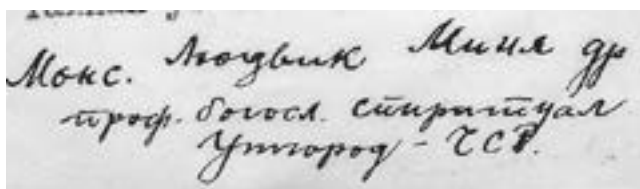 Монс. Людвик Миня др
проф. богосл. спиритуал
Ужгород - ЧСР.